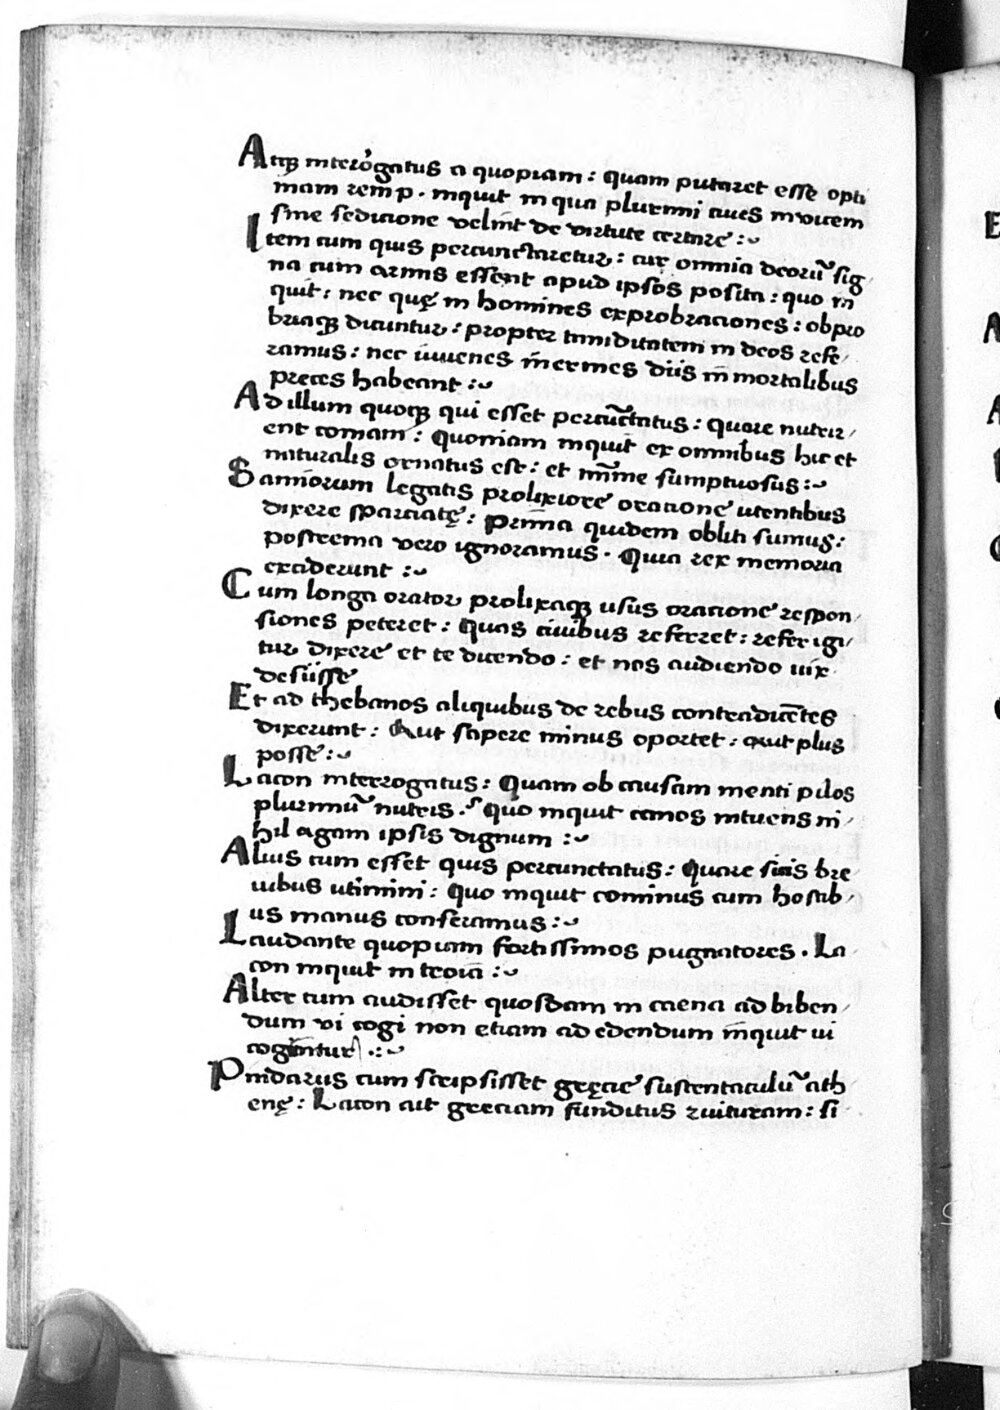 Atq₃ interogatus a quopiam : quam putaret esse opti
mam remp . inquit in qua plurimi ciues inuicem
sine sedicione velint de virtute certare :~
Item cum quis percunctaretur : cur omnia deorũ sig
na cum armis essent apud ipsos posita : quo in
quit : nec quę in homines exprobraciones : obpro
briaq₃ dicuntur : propter timiditatem in deos refe,
ramus : nec iuuenes inermes diis in mortalibus
preces habeant :~
Ad illum quoq₃ qui esset percũctatus : Quare nutrir,
ent comam : Quoniam inquit ex omnibus hic et
naturalis ornatus est : et mĩme sumptuosus :~
Samiorum legatis prolixiore oracione utentibus
dixere sparciatę : Prima quidem obliti sumus :
postrema vero ignoramus . Quia rex memoria
exciderunt :~
Cum longa orator prolixaq₃ usus oracione respon,
siones peteret : Quas ciuibus referret : refer igi,
tur dixere et te dicendo : et nos audiendo uix
desiisse
Et ad thebanos aliquibus de rebus contradicẽtes
dixerunt : Aut sapere minus oportet : aut plus
posse :~
Lacon interrogatus : Quam ob causam menti pilos
plurimũ nutris . Quo inquit canos intuens ni,
hil agam ipsis dignum :~
Alius cum esset quis percunctatus : Quare sicis bre
uibus utimini : Quo inquit cominus cum hostib,
us manus conseramus :~
Laudante quopiam fortissimos pugnatores . La
con inquit in troia :~
Alter cum audisset quosdam in caena ad biben,
dum vi cogi non etiam ad edendum inquit ui
cogũntur .:~
Pindarus cum scripsisset gręcie sustentaculũ ath
enę : Lacon ait greciam funditus ruituram : si